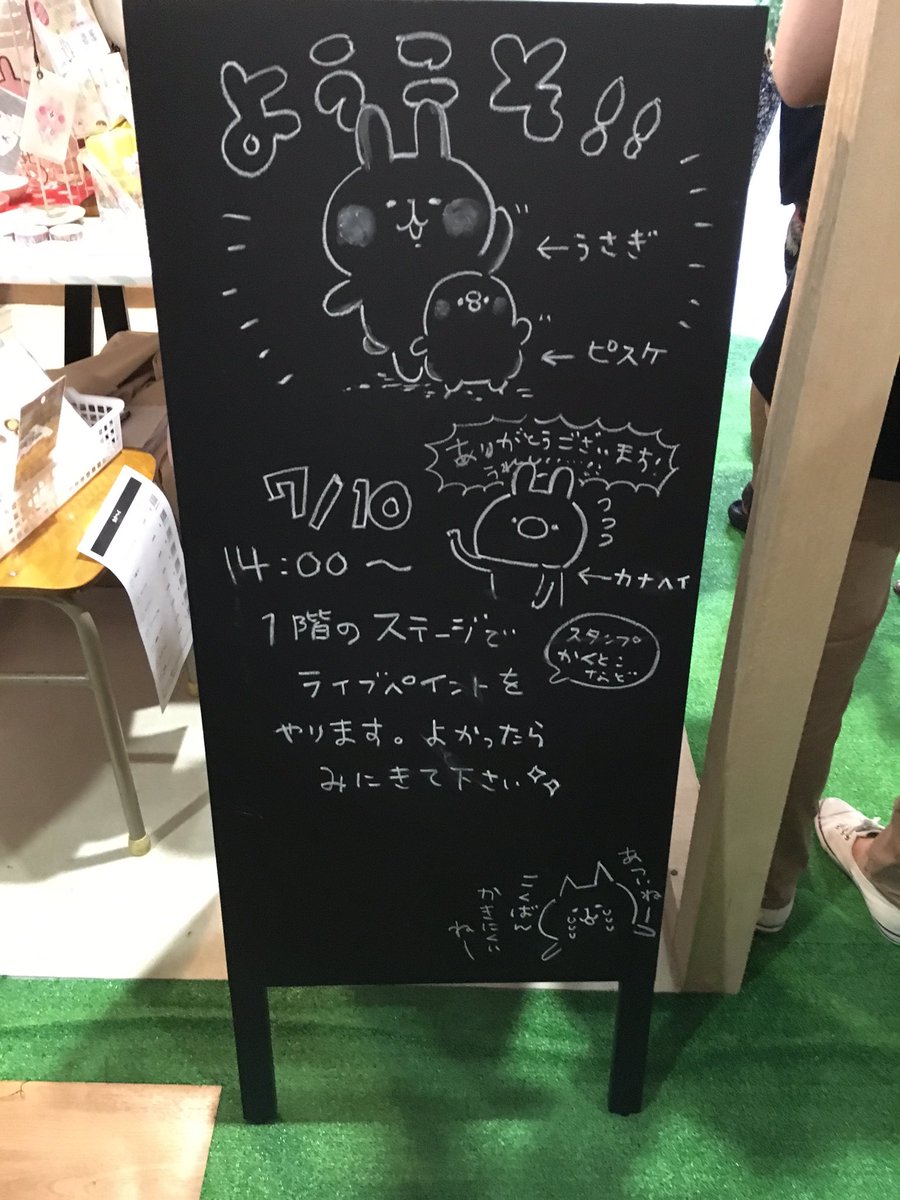 ようこそ!!
←うさぎ
←ピスケ
ありがとうございます!
7/10
14:00～
←カナヘイ
1階のステージで
ライブペイントを
やります。よかったら
みにきて下さい
スタンプ
かくとこ
などど
あついねー
こくばん
かきにくい
ねー